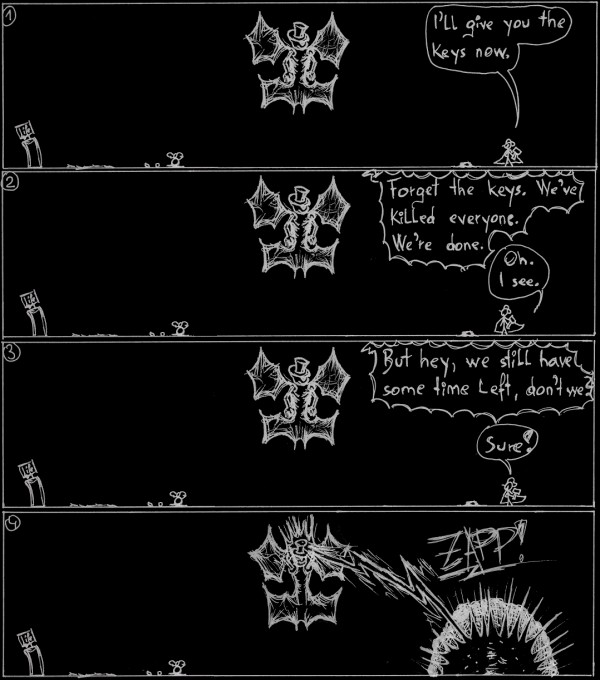 1
I'll give you the
keys now.
2
Forget the keys. We've
killed everyone.
We're done.
Oh.
I see.
3
But hey, we still have
some time left, don't we?
Sure!
4
ZAPP!